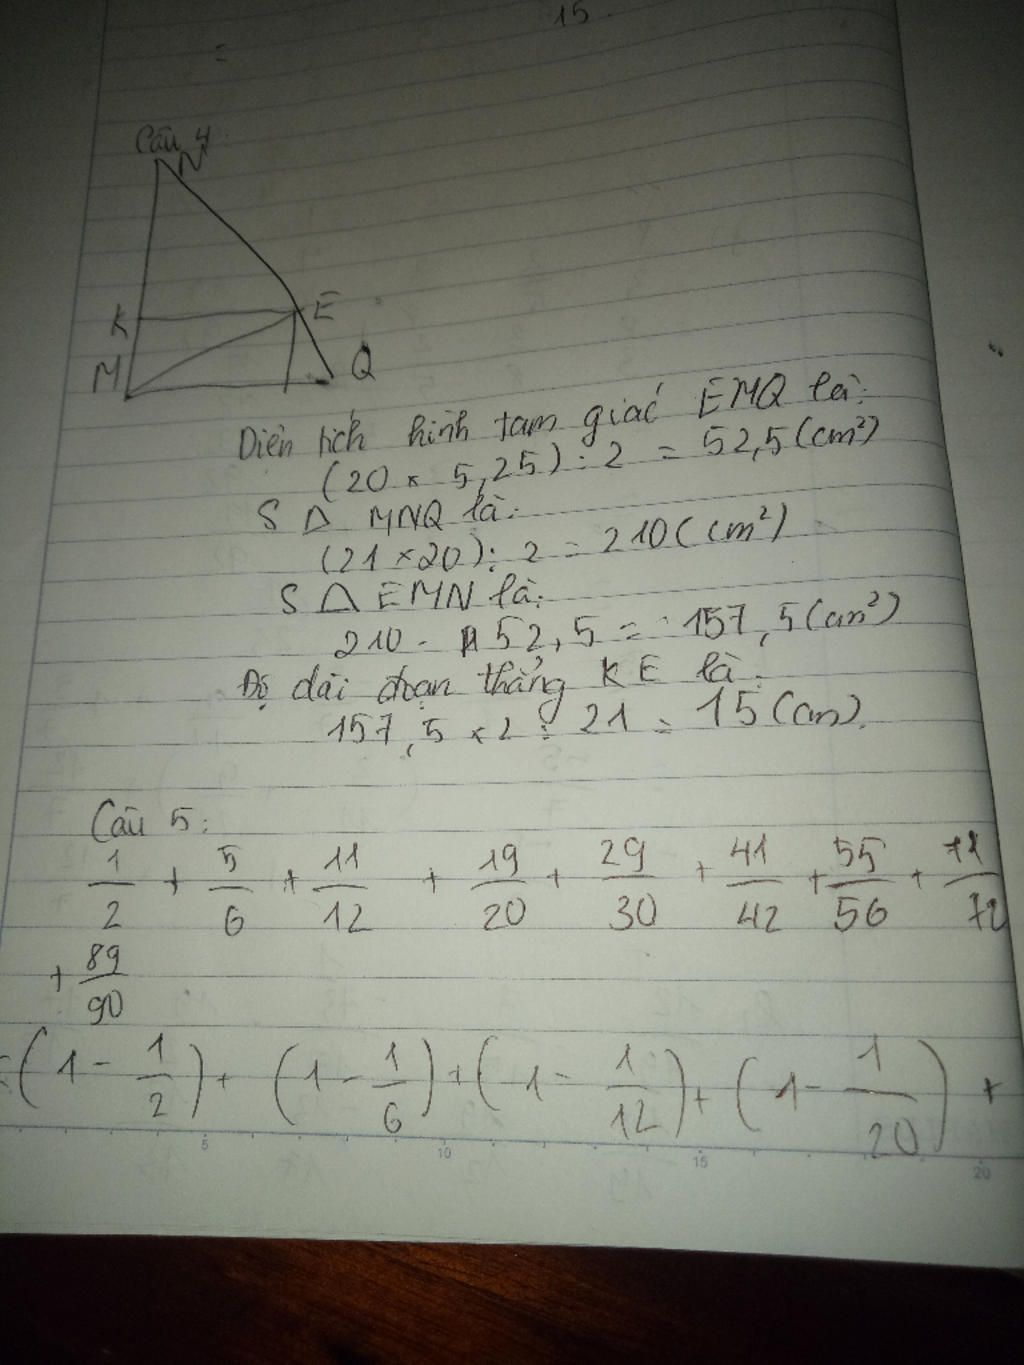 15
=
Câu 4:
N
K
E
M
Q
Diện tích hình tam giác EMQ là:
(20 × 5,25) : 2 = 52,5 (cm²)
S Δ MNQ là:
(21 × 20) : 2 = 210 (cm²)
S Δ EMN là:
210 - 52,5 = 157,5 (cm²)
Độ dài đoạn thẳng KE là:
157,5 × 2 : 21 = 15 (cm).
Câu 5:
1/2 + 5/6 + 11/12 + 19/20 + 29/30 + 41/42 + 55/56 + 71/72
+ 89/90
= (1 - 1/2) + (1 - 1/6) + (1 - 1/12) + (1 - 1/20) +
5 10 15 20